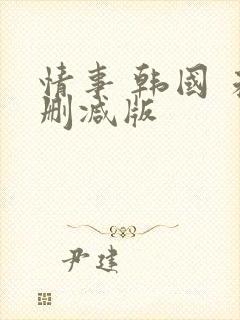 情事 韩國
删减版
尹建